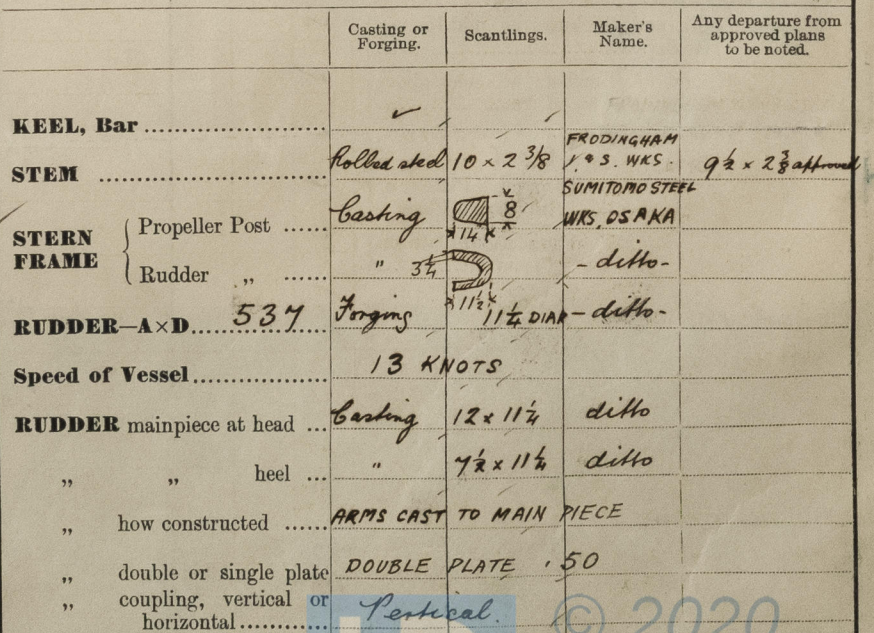 Casting or Forging. Scantlings. Maker's Name. Any departure from approved plans to be noted.
KEEL, Bar ✓
STEM Rolled steel 10 × 2 3/8 FRODINGHAM I & S. WKS. 9 1/2 × 2 3/8 approved
STERN FRAME { Propeller Post Casting 8 14 SUMITOMO STEEL WKS, OSAKA
Rudder „ " 3 1/4 11 1/2 - ditto -
RUDDER—A×D 537 Forging 11 1/4 DIAR - ditto -
Speed of Vessel 13 KNOTS
RUDDER mainpiece at head ... Casting 12 × 11 1/4 ditto
„ „ heel ... " 7 1/2 × 11 1/4 ditto
„ how constructed ARMS CAST TO MAIN PIECE
„ double or single plate DOUBLE PLATE .50
„ coupling, vertical or
horizontal Vertical.
© 2020